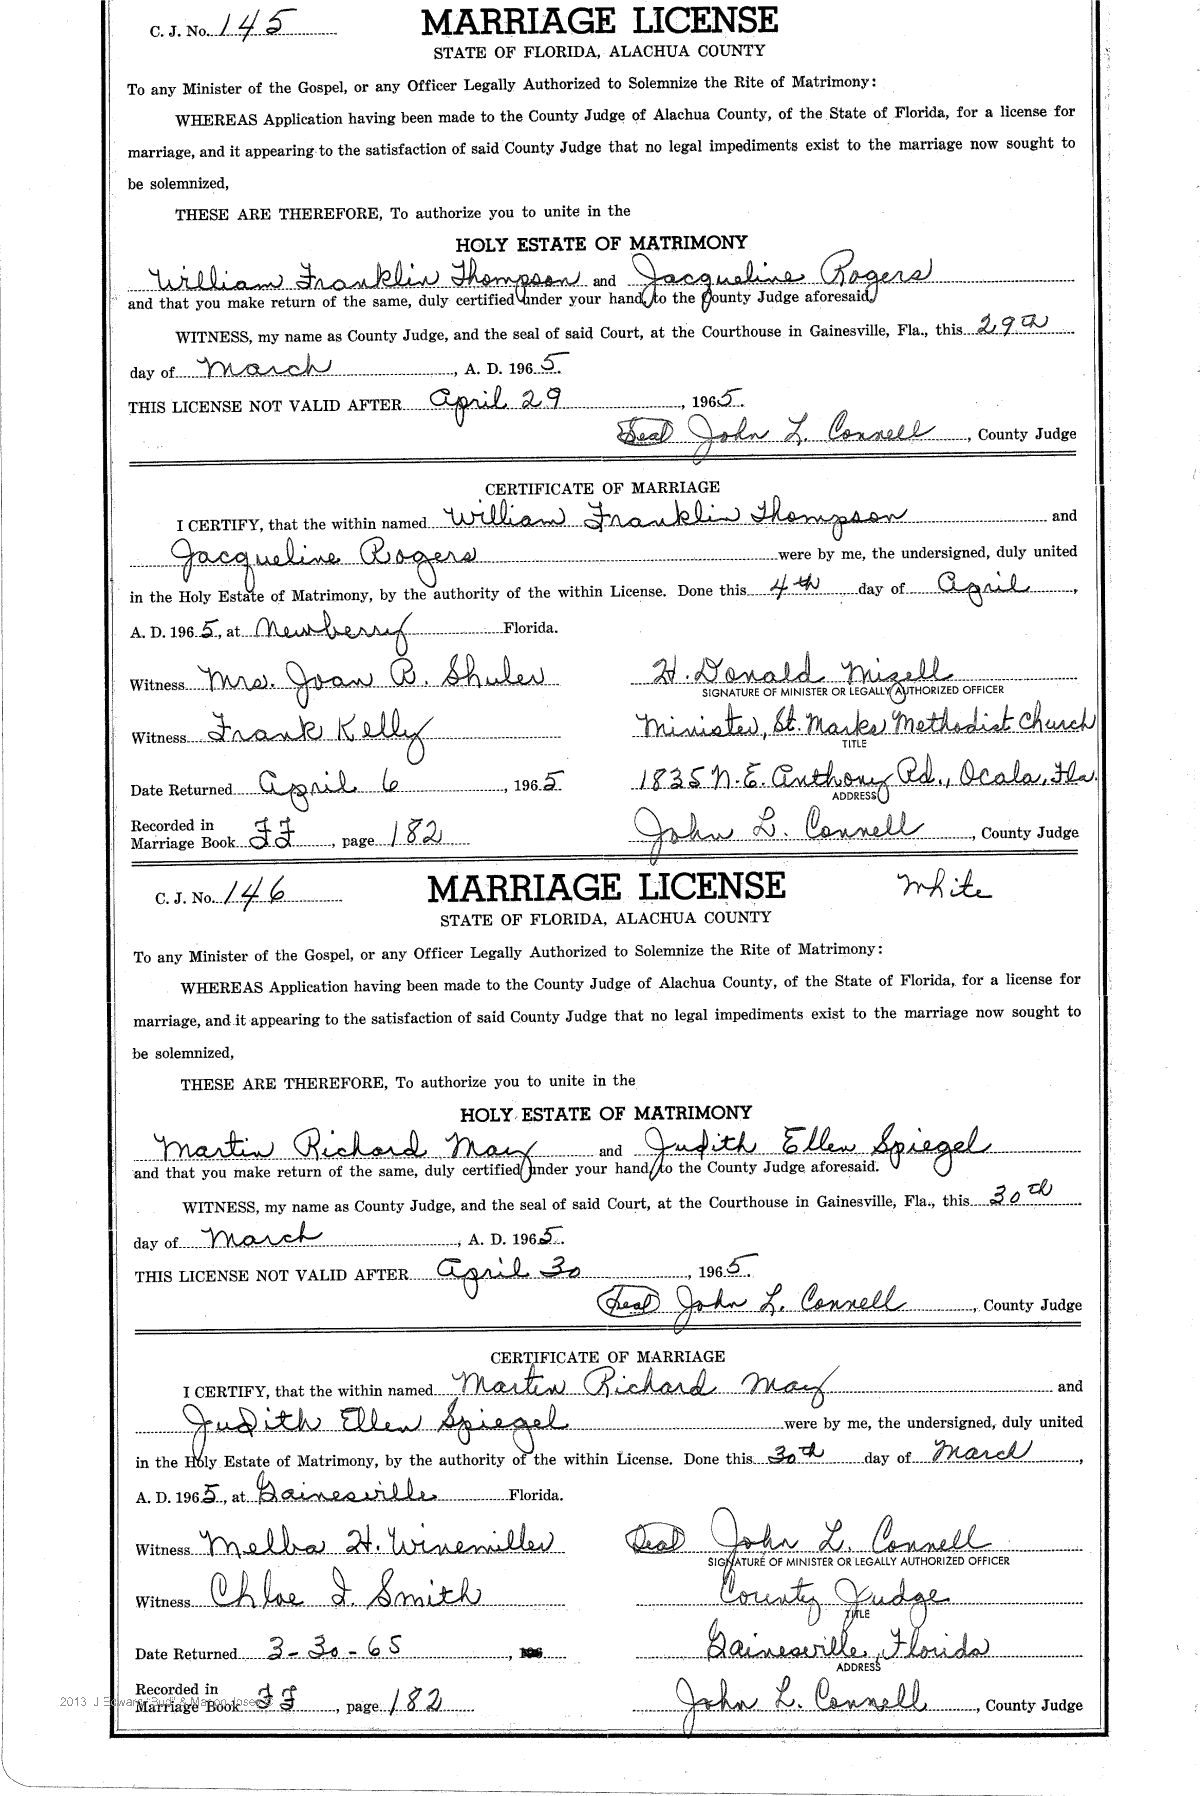 C. J. No. 145
MARRIAGE LICENSE
STATE OF FLORIDA, ALACHUA COUNTY
To any Minister of the Gospel, or any Officer Legally Authorized to Solemnize the Rite of Matrimony:
WHEREAS Application having been made to the County Judge of Alachua County, of the State of Florida, for a license for
marriage, and it appearing to the satisfaction of said County Judge that no legal impediments exist to the marriage now sought to
be solemnized,
THESE ARE THEREFORE, To authorize you to unite in the
HOLY ESTATE OF MATRIMONY
William Franklin Thompson and Jacqueline Rogers
and that you make return of the same, duly certified under your hand to the County Judge aforesaid.
WITNESS, my name as County Judge, and the seal of said Court, at the Courthouse in Gainesville, Fla., this 29th
day of March, A. D. 1965.
THIS LICENSE NOT VALID AFTER April 29, 1965.
Seal John L. Connell, County Judge
CERTIFICATE OF MARRIAGE
I CERTIFY, that the within named William Franklin Thompson and
Jacqueline Rogers were by me, the undersigned, duly united
in the Holy Estate of Matrimony, by the authority of the within License. Done this 4th day of April,
A. D. 1965, at Newberry Florida.
Witness Mrs. Joan B. Shuler H. Donald Mizell
SIGNATURE OF MINISTER OR LEGALLY AUTHORIZED OFFICER
Witness Frank Kelly Minister, St. Marks Methodist Church
TITLE
Date Returned April 6, 1965 1835 N.E. Anthony Rd., Ocala, Fla.
ADDRESS
Recorded in
Marriage Book FF, page 182 John L. Connell, County Judge
C. J. No. 146
MARRIAGE LICENSE White
STATE OF FLORIDA, ALACHUA COUNTY
To any Minister of the Gospel, or any Officer Legally Authorized to Solemnize the Rite of Matrimony:
WHEREAS Application having been made to the County Judge of Alachua County, of the State of Florida, for a license for
marriage, and it appearing to the satisfaction of said County Judge that no legal impediments exist to the marriage now sought to
be solemnized,
THESE ARE THEREFORE, To authorize you to unite in the
HOLY ESTATE OF MATRIMONY
Martin Richard May and Judith Ellen Spiegel
and that you make return of the same, duly certified under your hand to the County Judge aforesaid.
WITNESS, my name as County Judge, and the seal of said Court, at the Courthouse in Gainesville, Fla., this 30th
day of March, A. D. 1965.
THIS LICENSE NOT VALID AFTER April 30, 1965.
Seal John L. Connell, County Judge
CERTIFICATE OF MARRIAGE
I CERTIFY, that the within named Martin Richard May and
Judith Ellen Spiegel were by me, the undersigned, duly united
in the Holy Estate of Matrimony, by the authority of the within License. Done this 30th day of March,
A. D. 1965, at Gainesville Florida.
Witness Melba H. Winemiller Seal John L. Connell
SIGNATURE OF MINISTER OR LEGALLY AUTHORIZED OFFICER
Witness Chloe I. Smith County Judge
TITLE
Date Returned 3-30-65, Gainesville, Florida
ADDRESS
Recorded in
Marriage Book FF, page 182 John L. Connell, County Judge
2013 J Edward "Bud" &